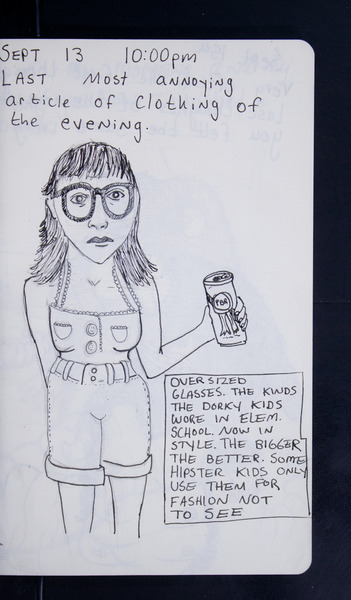 SEPT 13 10:00pm
LAST Most annoying
article of clothing of
the evening.
PBR
OVER SIZED
GLASSES. THE KINDS
THE DORKY KIDS
WORE IN ELEM.
SCHOOL. NOW IN
STYLE. THE BIGGER
THE BETTER. SOME
HIPSTER KIDS ONLY
USE THEM FOR
FASHION NOT
TO SEE